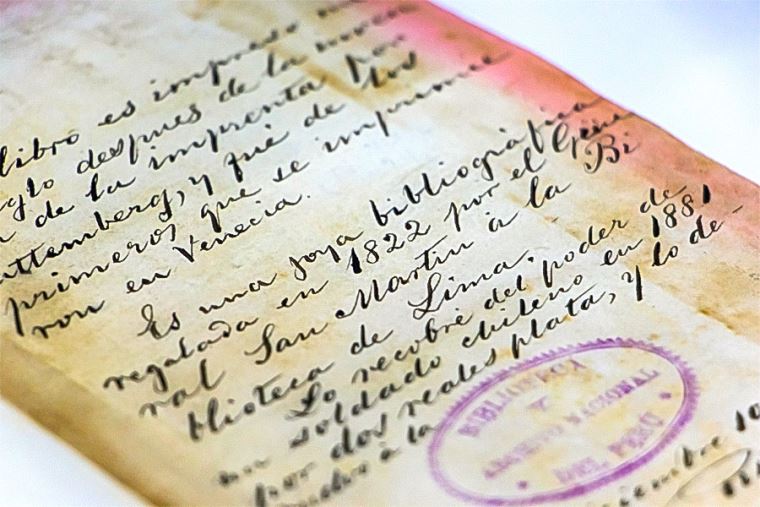 libro es impreso
despues de la nueva
de la imprenta por
attemberg, y fué de los
primeros que se imprimie
ron en Venecia.
Es una joya bibliográfica
regalada en 1822 por el Géne
ral San Martin à la Bi
blioteca de Lima.
Lo recobré del poder de
un soldado chileno en 1881
por dos reales plata, y lo de-
à la
BIBLIOTECA
Y
ARCHIVO NACIONAL
DEL PERÚ